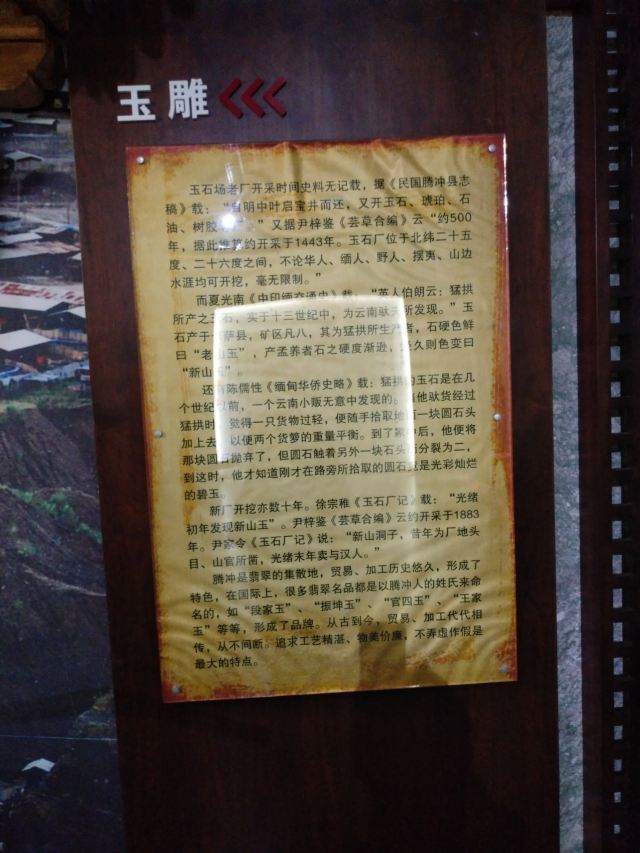 玉雕
玉石场老厂开采时间史料无记载，据《民国腾冲县志
稿》载：“自明中叶启宝井而还，又开玉石、琥珀、石
油、树胶 。”又据尹梓鉴《芸草合编》云“约500
年，据此推算约开采于1443年。玉石厂位于北纬二十五
度、二十六度之间，不论华人、缅人、野人、摆夷、山边
水涯均可开挖，毫无限制。”
而夏光南《中印缅交通史》载：“英人伯朗云：猛拱
所产之玉石，实于十三世纪中，为云南驮夫所发现。”玉
石产于 萨县，矿区凡八，其为猛拱所生产者，石硬色鲜
曰“老山玉”，产孟养者石之硬度渐逊，经久则色变曰
“新山玉”。
还有陈儒性《缅甸华侨史略》载：猛拱的玉石是在几
个世纪以前，一个云南小贩无意中发现的。当他驮货经过
猛拱时，觉得一只货物过轻，便随手拾取地面一块圆石头
加上去，以便两个货箩的重量平衡。到了家中后，他便将
那块圆石抛弃了，但圆石触着另外一块石头而分裂为二，
到这时，他才知道刚才在路旁所拾取的圆石竟是光彩灿烂
的碧玉。
新厂开挖亦数十年。徐宗稚《玉石厂记》载：“光绪
初年发现新山玉”。尹梓鉴《芸草合编》云约开采于1883
年。尹家令《玉石厂记》说：“新山洞子，昔年为厂地头
目、山官所凿，光绪末年卖与汉人。”
腾冲是翡翠的集散地，贸易、加工历史悠久，形成了
特色，在国际上，很多翡翠名品都是以腾冲人的姓氏来命
名的，如“段家玉”、“振坤玉”、“官四玉”、“王家
玉”等等，形成了品牌。从古到今，贸易、加工代代相
传，从不间断。追求工艺精湛、物美价廉，不弄虚作假是
最大的特点。